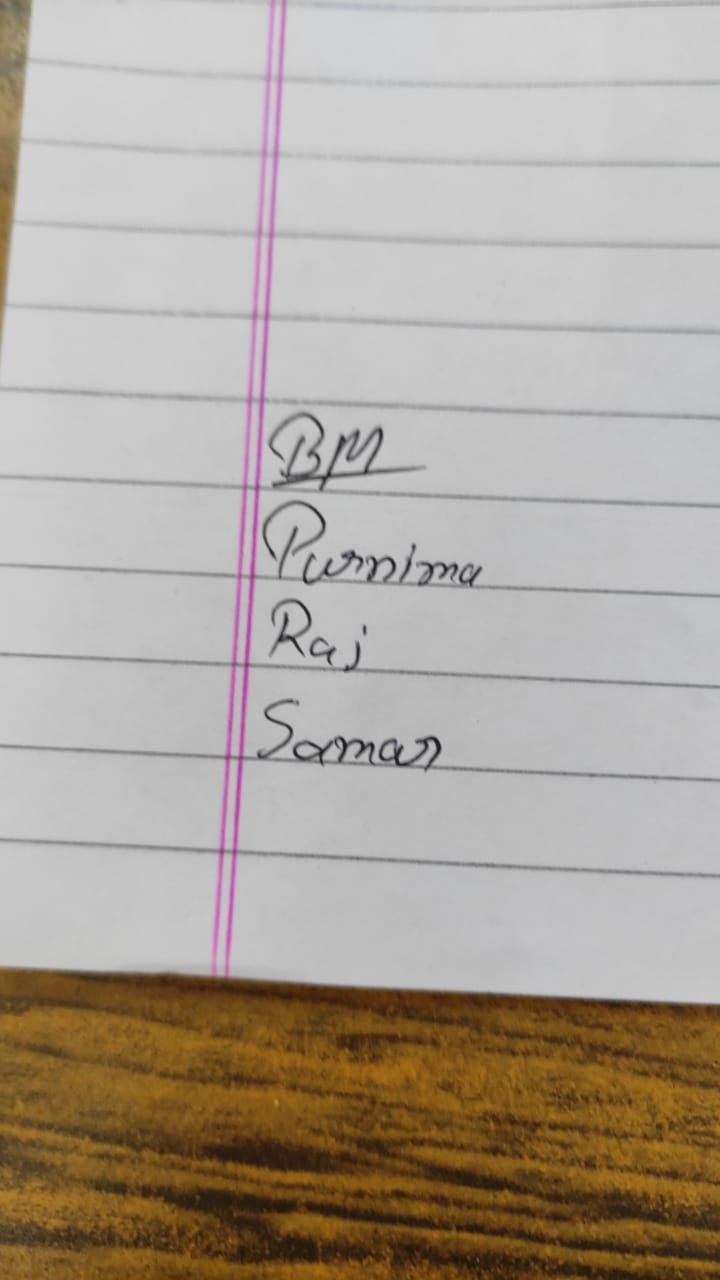 BM
Purnima
Raj
Samar